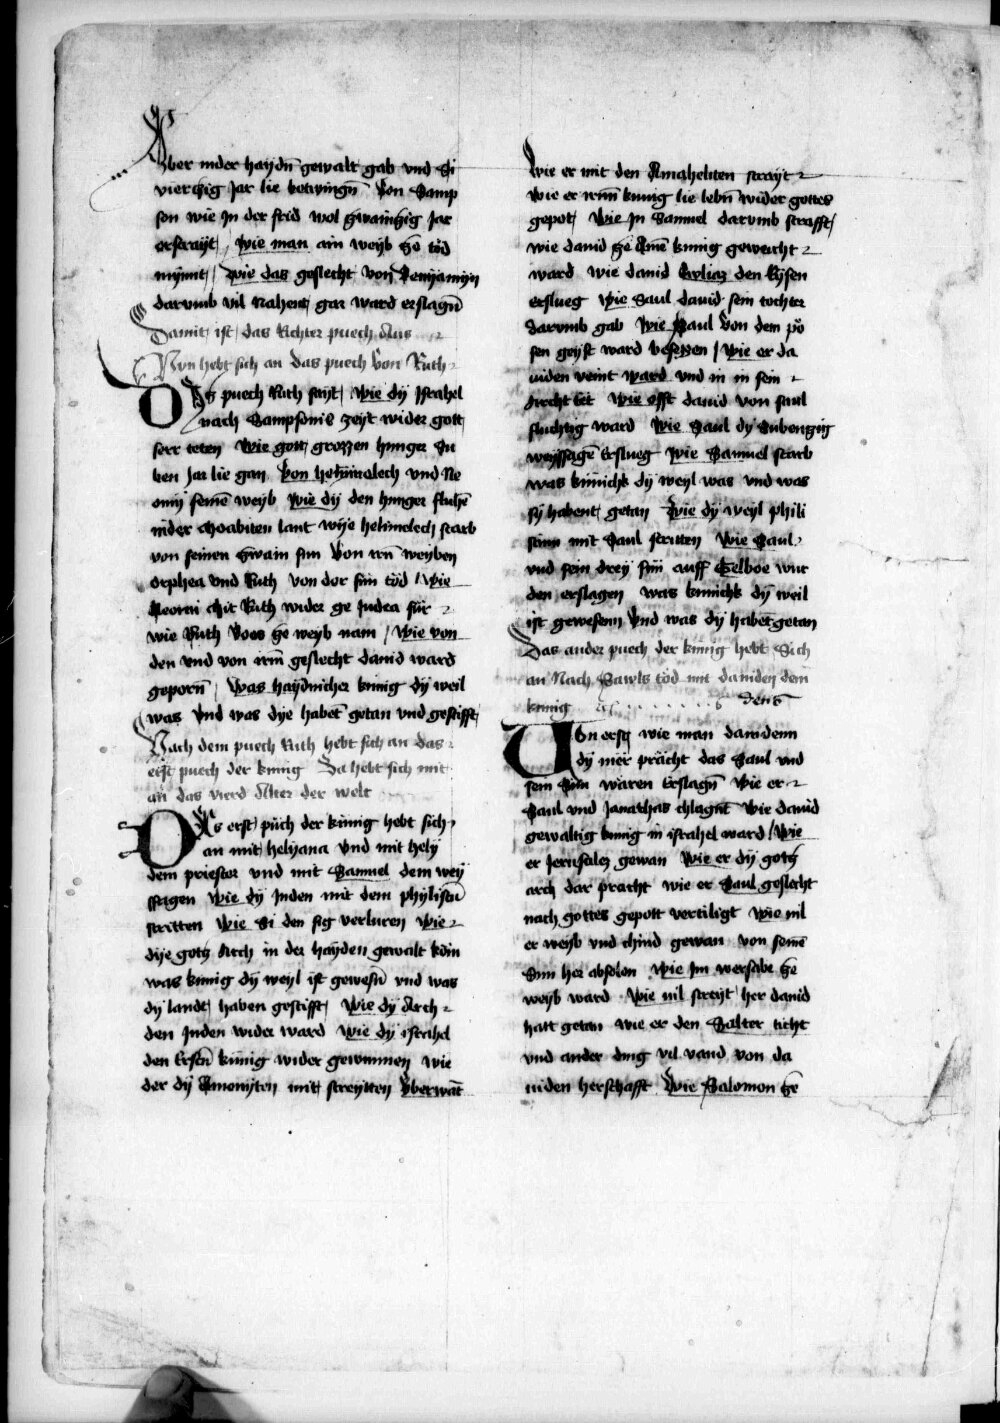 Aber inder haydn̄ gewalt gab vnd Si
vierczig Jar lie betwingn̄ Von Samp
son wie Jn der frid wol zwainczig Jar
erstrayt, wie man ain weyb ze tod
mynnt, wie das geslecht von Beniamyn
darvmb vil Nahent gar ward erslagn̄
Damit ist das Richter puech Aus
Nvn hebt sich an das puech von Ruth
Das puech Ruth sayt, wie dy Jsrahel
nach Sampsonis zeyt wider gott
serr teten wie gott grozzen hunger Si
ben Jar lie gan von helimalech vnd Ne
omy seinē weyb wie dy den hunger fluhē
inder Moabiten lant wye helimelech starb
von seinen zwain sun Von irn̄ weyben
Orphea vnd Ruth von der sun tod / wie
Neomi mit Ruth wider ge Judea fur
wie Ruth Boos ze weyb nam / wie von
den vnd von irm̄ geslecht dauid ward
geporn̄, was haydnischer kunig dy weil
was Vnd was dye habēt getan vnd gestifft,
Nach dem puech Ruth hebt sich an das
erst puech der kunig Da hebt sich mit
an das vierd Alter der welt
Das erst puch der kunig hebt sich
an mit helyana vnd mit hely
dem priester vnd mit Samuel dem wey
ssagen wie dy Juden mit dem phylistē
stritten wie Si den sig verluren wie
dye gotz Arch in der hayden gewalt kom
was kunig dy weyl ist gewesn̄ vnd was
dy landt, haben gestifft, wie dy Arch
den Juden wider ward wie dy israhel
den Erstn̄ kunig wider gewunnen wie
der dy Amonyten mit streytten vberwāt
wie er mit den Amaheliten strayt
wie er irm̄ kunig lie lebn̄ wider gottes
gepot, wie Jn Samuel darvmb strafft,
wie dauid ze Ainē kunig geweicht
ward wie dauid Golias den Rysen
erslueg wie Saul dauid sein tochter
darvmb gab wie Saul von dem po
sen geyst ward besezzen / wie er da
uiden veint ward vnd in in sein
Aecht tet wie offt dauid von saul
fluchtig ward wie Saul dy Subenzig
weyssagē Erslueg wie Samuel starb
was kunichk dy weyl was vnd was
sy habent, getan wie dy weyl phili
stinn mit Saul stritten wie Saul
vnd sein drey sun auff Gelboe wur
den erslagen was kunichk dy weil
ist gewesenn Vnd was dy habēt getan
Das ander puech der kunig hebt Sich
an Nach Sawls tod mit dauiden dem
kunig
Von erst wie man dauidenn
dy mer pracht das Saul vnd
sein Sun waren Erslagn̄ wie er
Saul vnd Janathas chlagnt wie dauid
gewaltig kunig in israhel ward / wie
er Jerusalez gewan wie er dy gotz
arch dar pracht wie er Saul geslecht
nach gottes gepott vertiligt wie uil
er weyb vnd chind gewan von seinē
Sun her absolon wie Jm wersabe ze
weyb ward wie uil streyt her dauid
hatt getan wie er den Salter ticht
vnd ander ding vil vand von da
uiden herschafft wie Salomon ze